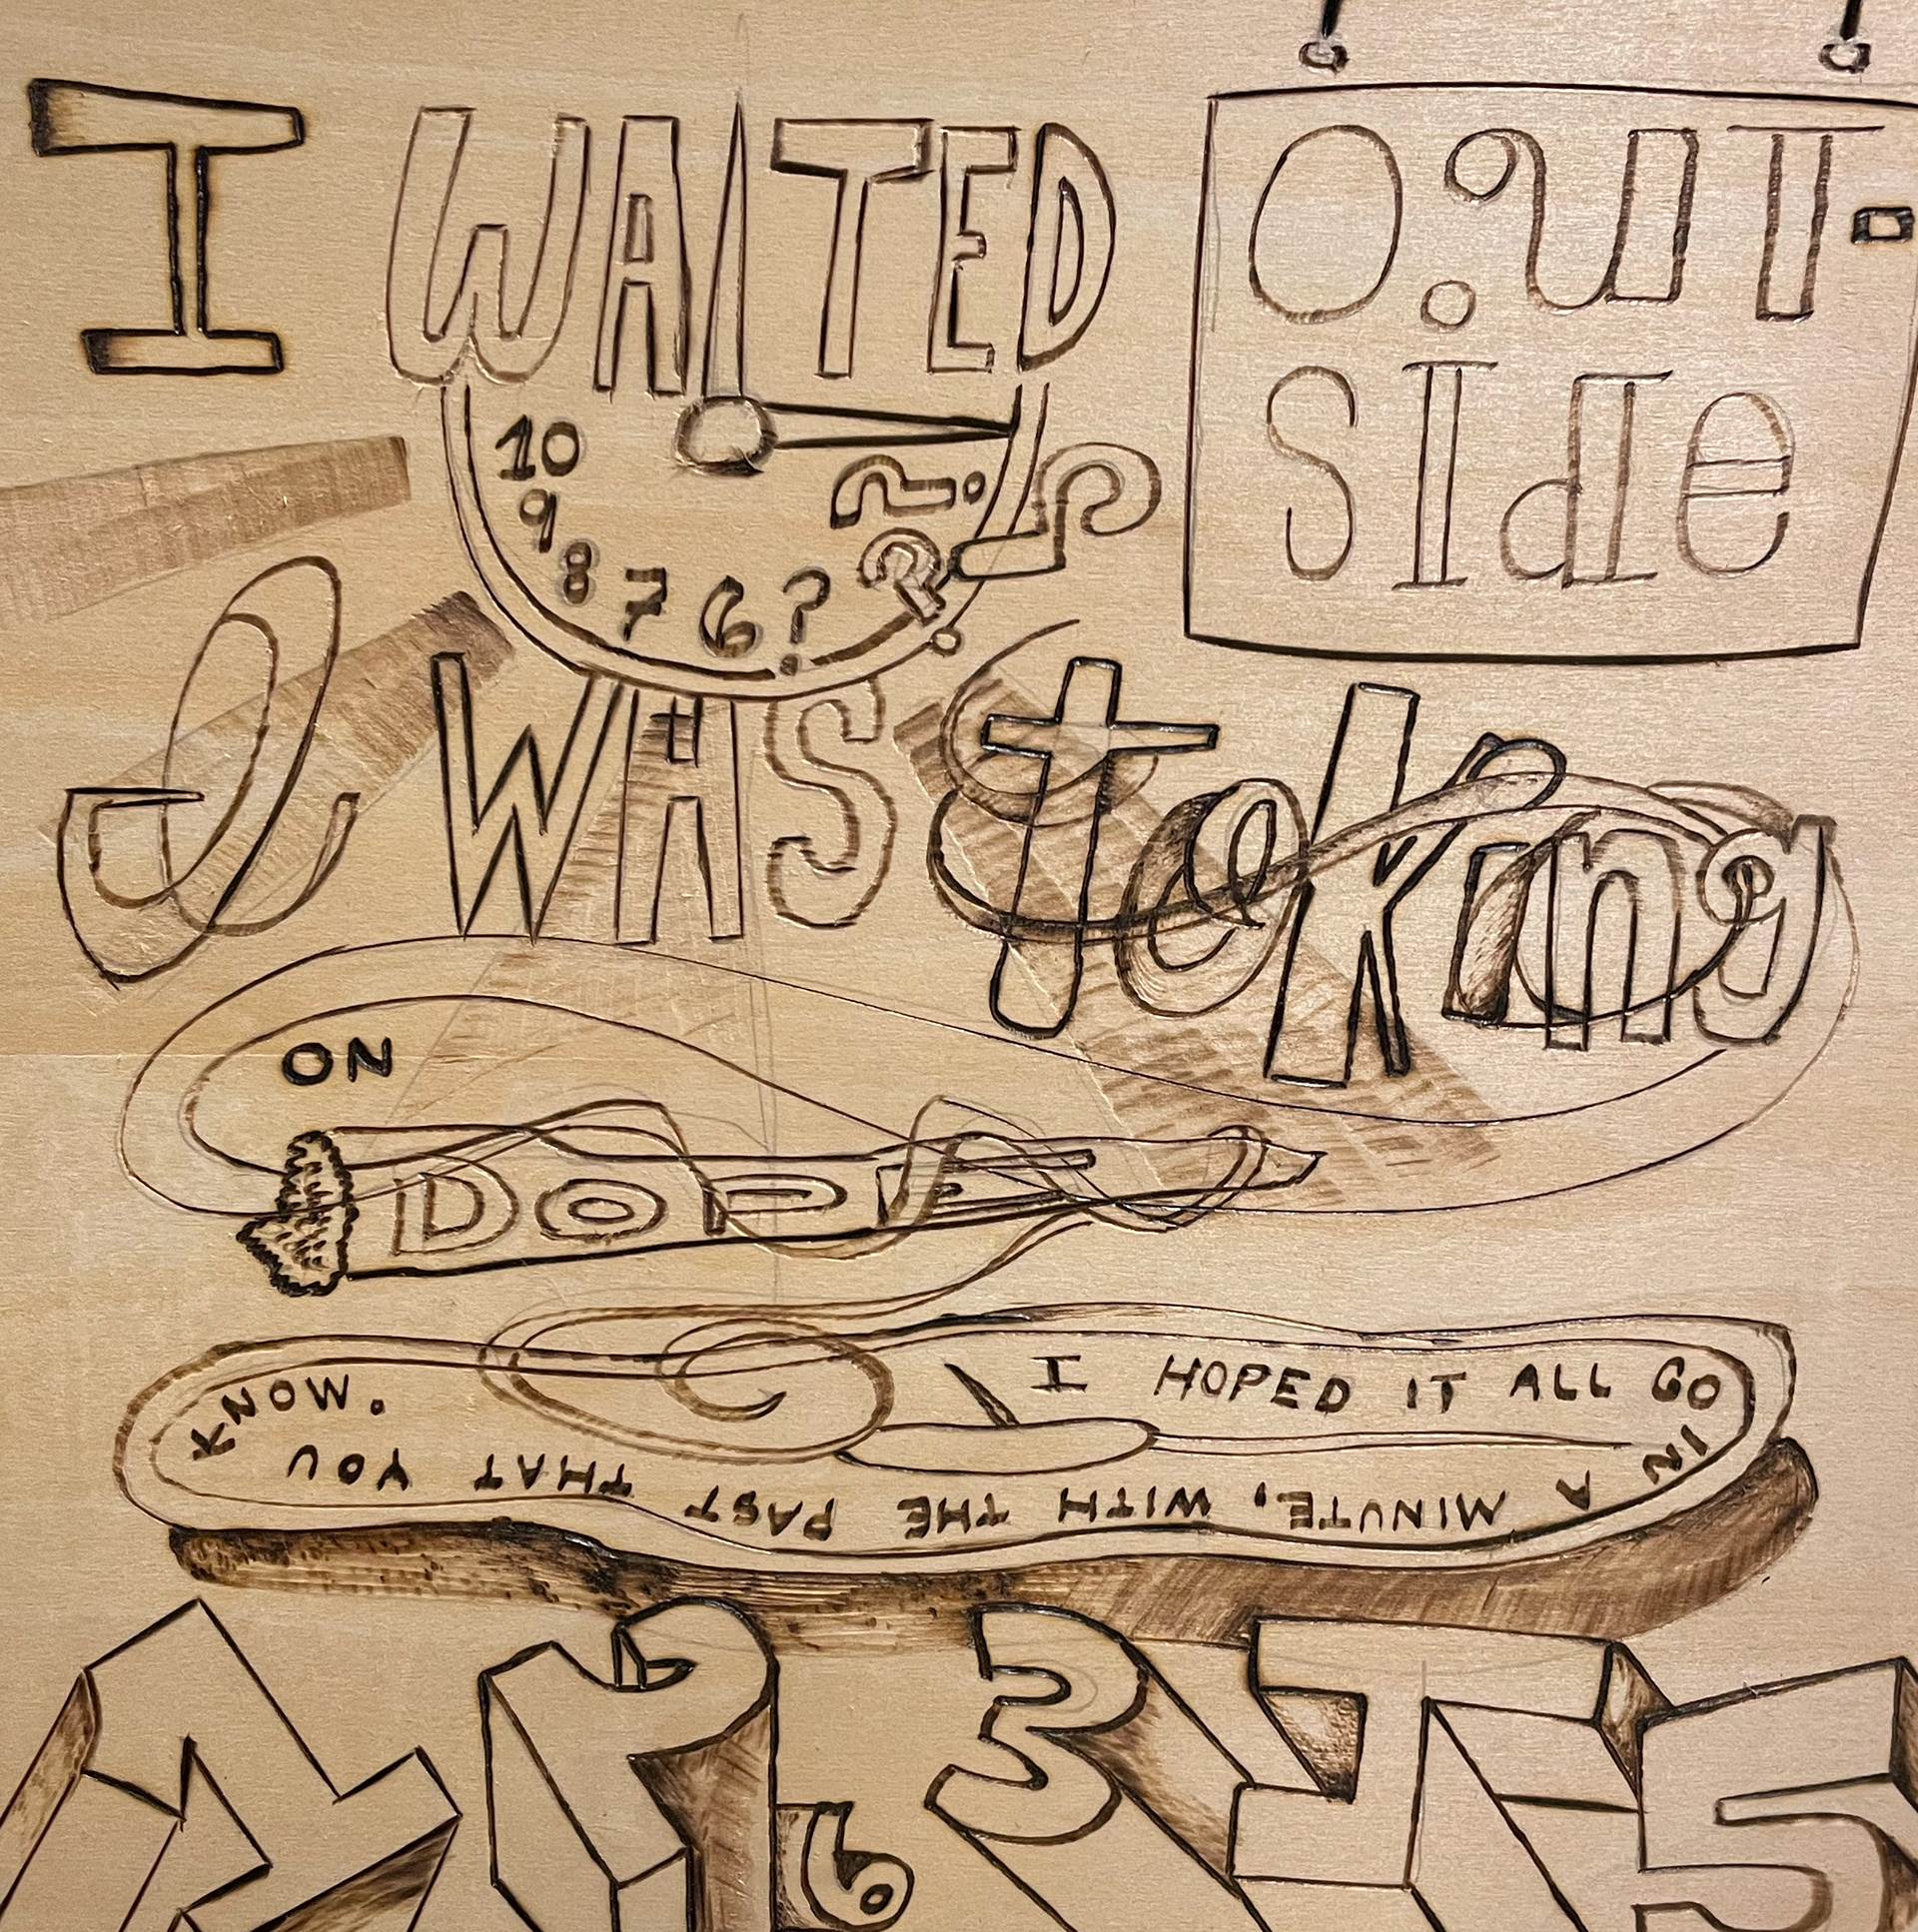 I WAITED
O.UT-
SIde
10
9
8
7
6
?
?
?
?
I WAS toking
ON
DOPE
I HOPED IT ALL GO
IN A MINUTE, WITH THE PAST THAT YOU
KNOW.
6